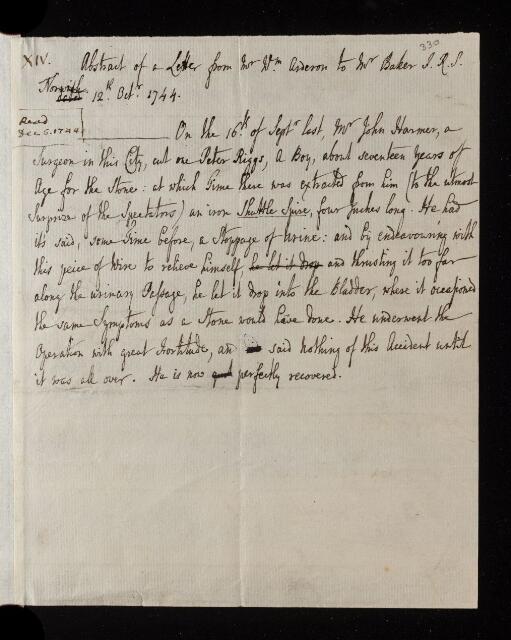 330
XIV. Abstract of a Letter from Mr Wm Arderon to Mr Baker F.R.S.
Norwich 12th Octr 1744.
Read
Dec 6. 1744
On the 16th of Septr last, Mr John Harmer, a
Surgeon in this City, cut one Peter Riggs, a Boy, about seventeen Years of
Age for the Stone: at which Time there was extracted from him (to the utmost
Surprize of the Spectators) an iron Shuttle Spire, four Inches long. He had
it's said, some Time before, a Stoppage of Urine: and by endeavouring with
this peice of Wire to relieve himself, he let it drop and thrusting it too far
along the urinary Passage, he let it drop into the Bladder, where it occasioned
the same Symptoms as a Stone would have done. He underwent the
Operation with great Fortitude, an said nothing of this Accident until
it was all over. He is now perfectly recovered.